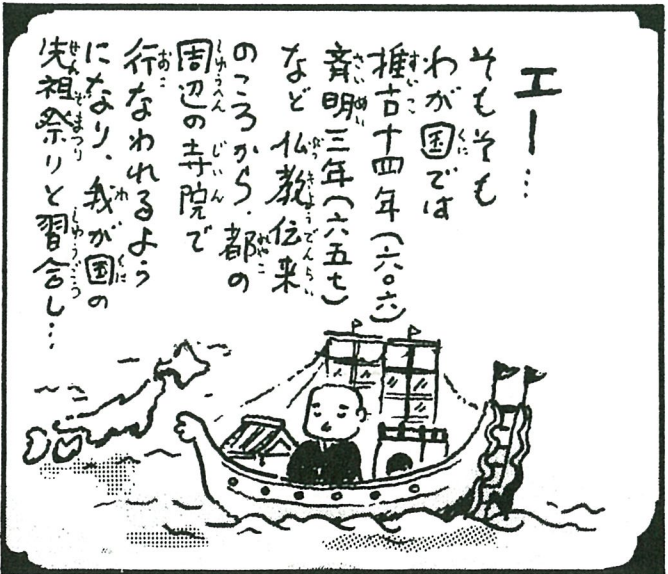 エー…
そもそも
わが国では
推古十四年(六〇六)
斉明三年(六五七)
など仏教伝来
のころから、都の
周辺の寺院で
行なわれるよう
になり、我が国の
先祖祭りと習合し…